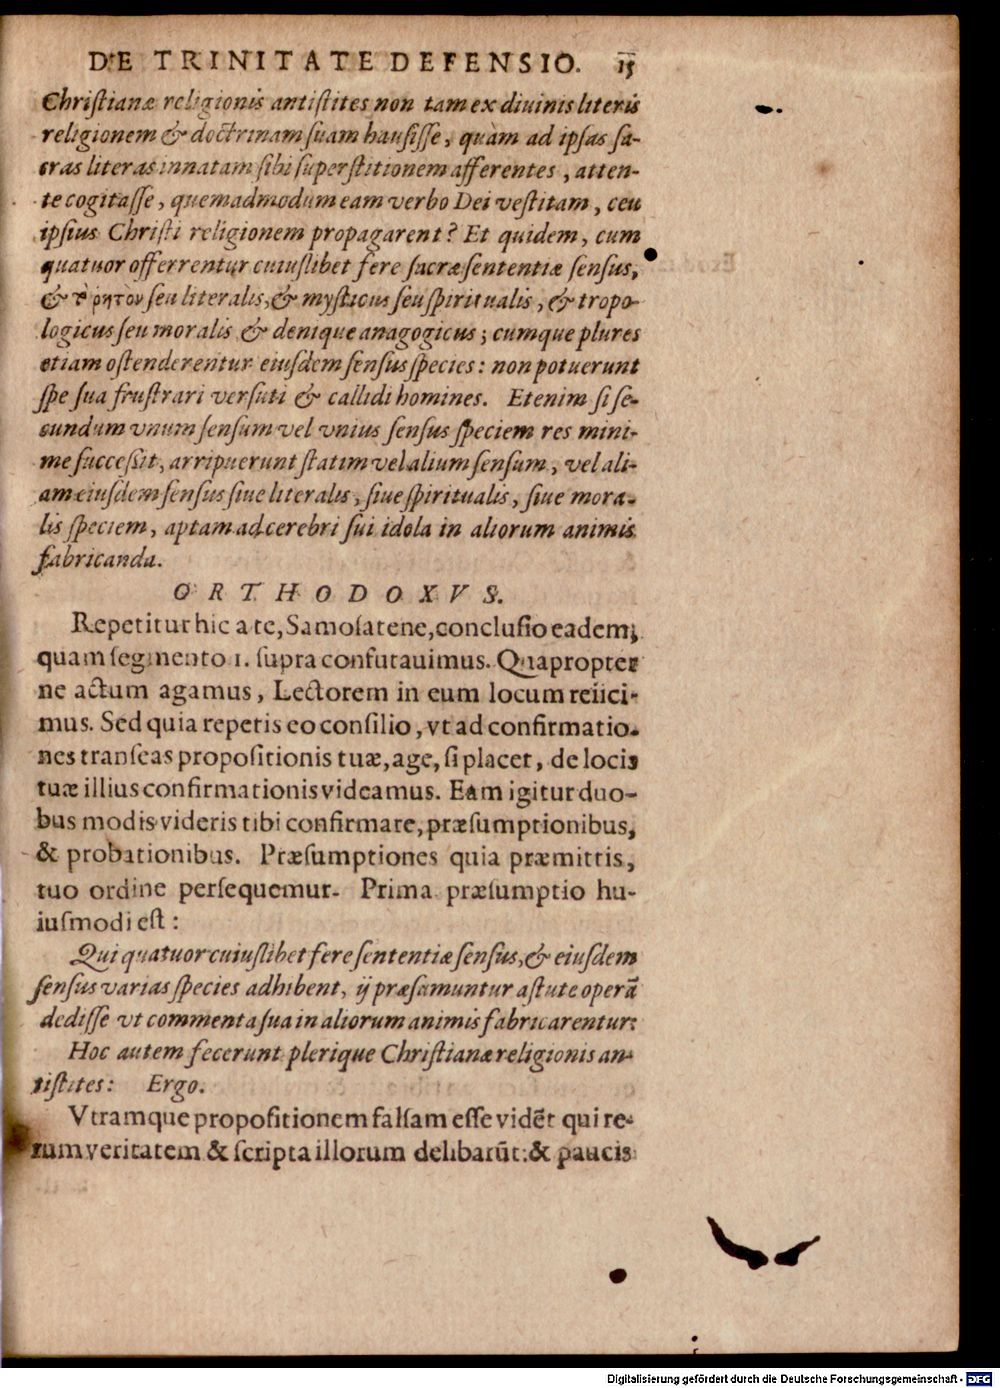 DE TRINITATE DEFENSIO. 15
Chriſtianæ religionis antiſtites non tam ex diuinis literis
religionem & doctrinam ſuam hauſiſſe, quàm ad ipſas ſa-
cras literas innatam ſibi ſuperſtitionem afferentes, atten-
te cogitaſſe, quemadmodum eam verbo Dei veſtitam, ceu
ipſius Chriſti religionem propagarent? Et quidem, cum
quatuor offerrentur cuiuſlibet fere ſacræ ſententiæ ſenſus,
& τὸ ῥητὸν ſeu literalis, & myſticus ſeu ſpiritualis, & tropo-
logicus ſeu moralis & denique anagogicus; cumque plures
etiam oſtenderentur eiuſdem ſenſus ſpecies: non potuerunt
ſpe ſua fruſtrari verſuti & callidi homines. Etenim ſi ſe-
cundum vnum ſenſum vel vnius ſenſus ſpeciem res mini-
me ſucceſſit, arripuerunt ſtatim vel alium ſenſum, vel ali-
am eiuſdem ſenſus ſiue literalis, ſiue ſpiritualis, ſiue mora-
lis ſpeciem, aptam ad cerebri ſui idola in aliorum animis
fabricanda.
ORTHODOXVS.
Repetitur hic a te, Samoſatene, concluſio eadem,
quam ſegmento 1. ſupra confutauimus. Quapropter
ne actum agamus, Lectorem in eum locum reiici-
mus. Sed quia repetis eo conſilio, vt ad confirmatio-
nes tranſeas propoſitionis tuæ, age, ſi placet, de locis
tuæ illius confirmationis videamus. Eam igitur duo-
bus modis videris tibi confirmare, præſumptionibus,
& probationibus. Præſumptiones quia præmittis,
tuo ordine perſequemur. Prima præſumptio hu-
iuſmodi eſt:
Qui quatuor cuiuſlibet fere ſententiæ ſenſus, & eiuſdem
ſenſus varias ſpecies adhibent, ij præſumuntur aſtute operā
dediſſe vt commenta ſua in aliorum animis fabricarentur:
Hoc autem fecerunt plerique Chriſtianæ religionis an-
tiſtites: Ergo.
Vtramque propoſitionem falſam eſſe vidēt qui re-
rum veritatem & ſcripta illorum delibarūt: & paucis
Digitalisierung gefördert durch die Deutsche Forschungsgemeinschaft - DFG